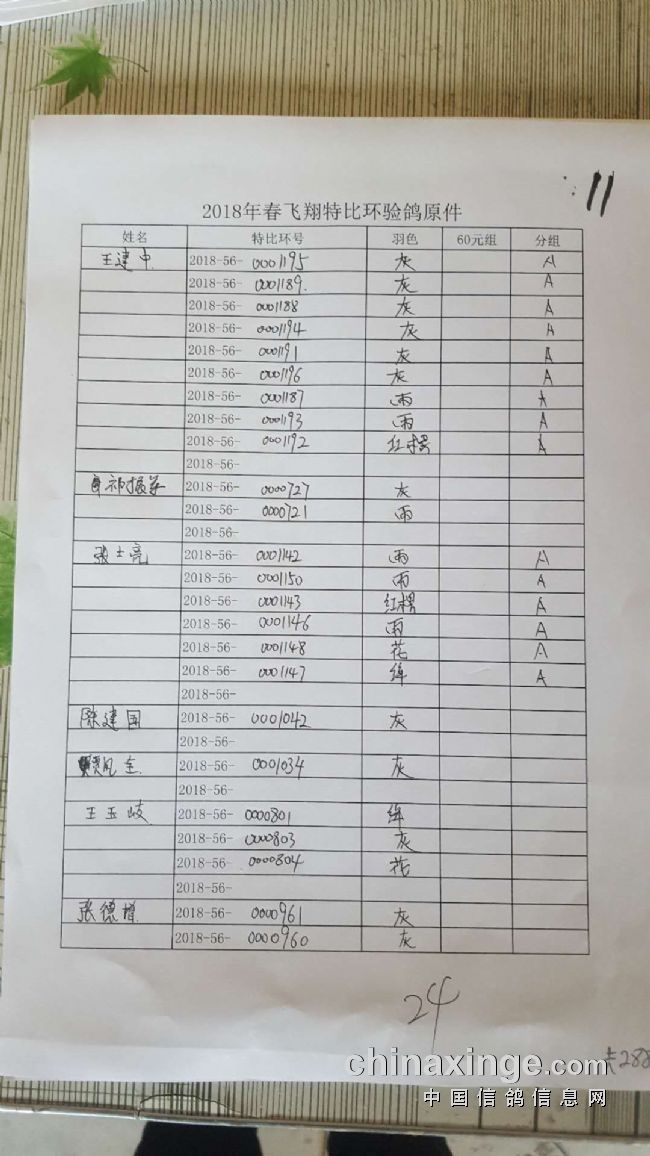 11
2018年春飞翔特比环验鸽原件
姓名 特比环号 羽色 60元组 分组
王建中 2018-56- 0001195 灰 A
2018-56- 0001189. 灰 A
2018-56- 0001188 灰 A
2018-56- 0001194 灰 A
2018-56- 0001191 灰 A
2018-56- 0001196 灰 A
2018-56- 0001187 雨 A
2018-56- 0001193 雨 A
2018-56- 0001192 红楞 A
2018-56-
2018-56- 0000727 灰
2018-56- 0000721 雨
2018-56-
张士亮 2018-56- 0001142 雨 A
2018-56- 0001150 雨 A
2018-56- 0001143 红楞 A
2018-56- 0001146 雨 A
2018-56- 0001148 花 A
2018-56- 0001147 绛 A
2018-56-
陈建国 2018-56- 0001042 灰
2018-56-
2018-56- 0001034 灰
2018-56-
王玉岐 2018-56- 0000801 绛
2018-56- 0000803 灰
2018-56- 0000804 花
2018-56-
张德增 2018-56- 0000961 灰
2018-56- 0000960 灰
24
288
chinaxinge.com
中国信鸽信息网